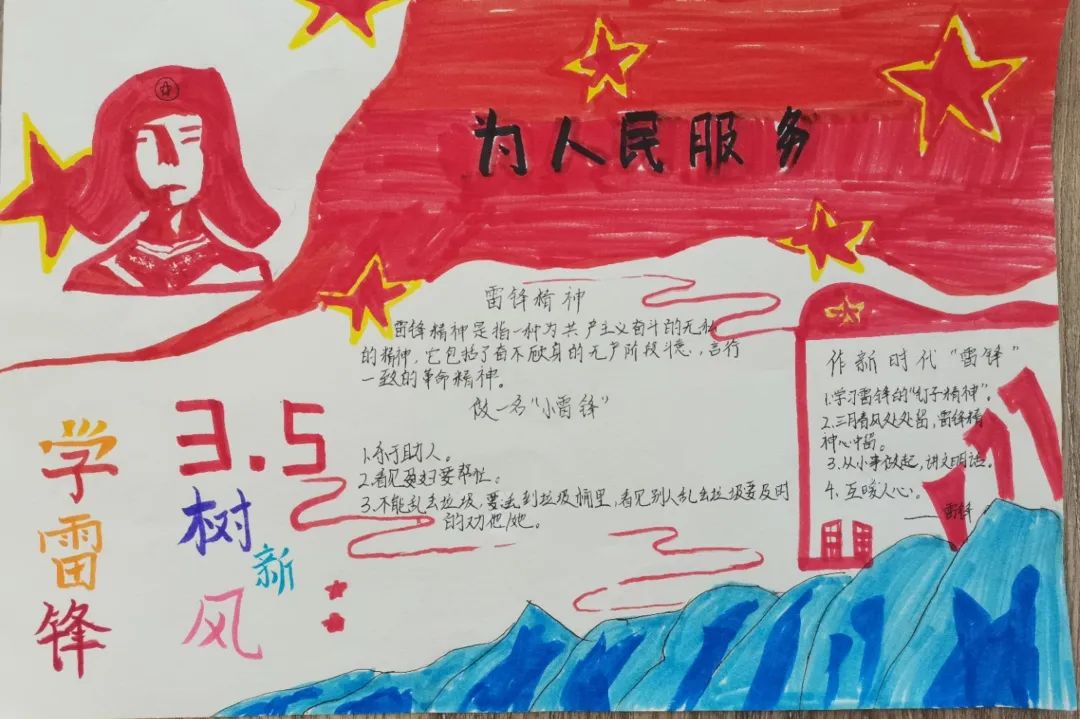 为人民服务
雷锋精神
雷锋精神是指一种为共产主义奋斗的无私
的精神，它包括了奋不顾身的无产阶段斗志，言行
一致的革命精神。
做一名“小雷锋”
1.乐于助人。
2.看见孕妇要帮忙。
3.不能乱丢垃圾，要丢到垃圾桶里，看见别人乱丢垃圾要及时
的劝他/她。
作新时代“雷锋”
1.学习雷锋的“钉子精神”。
2.三月春风处处留，雷锋精
神心中留。
3.从小事做起，讲文明话。
4.互暖人心。
——雷锋
学雷锋
3.5
树新风